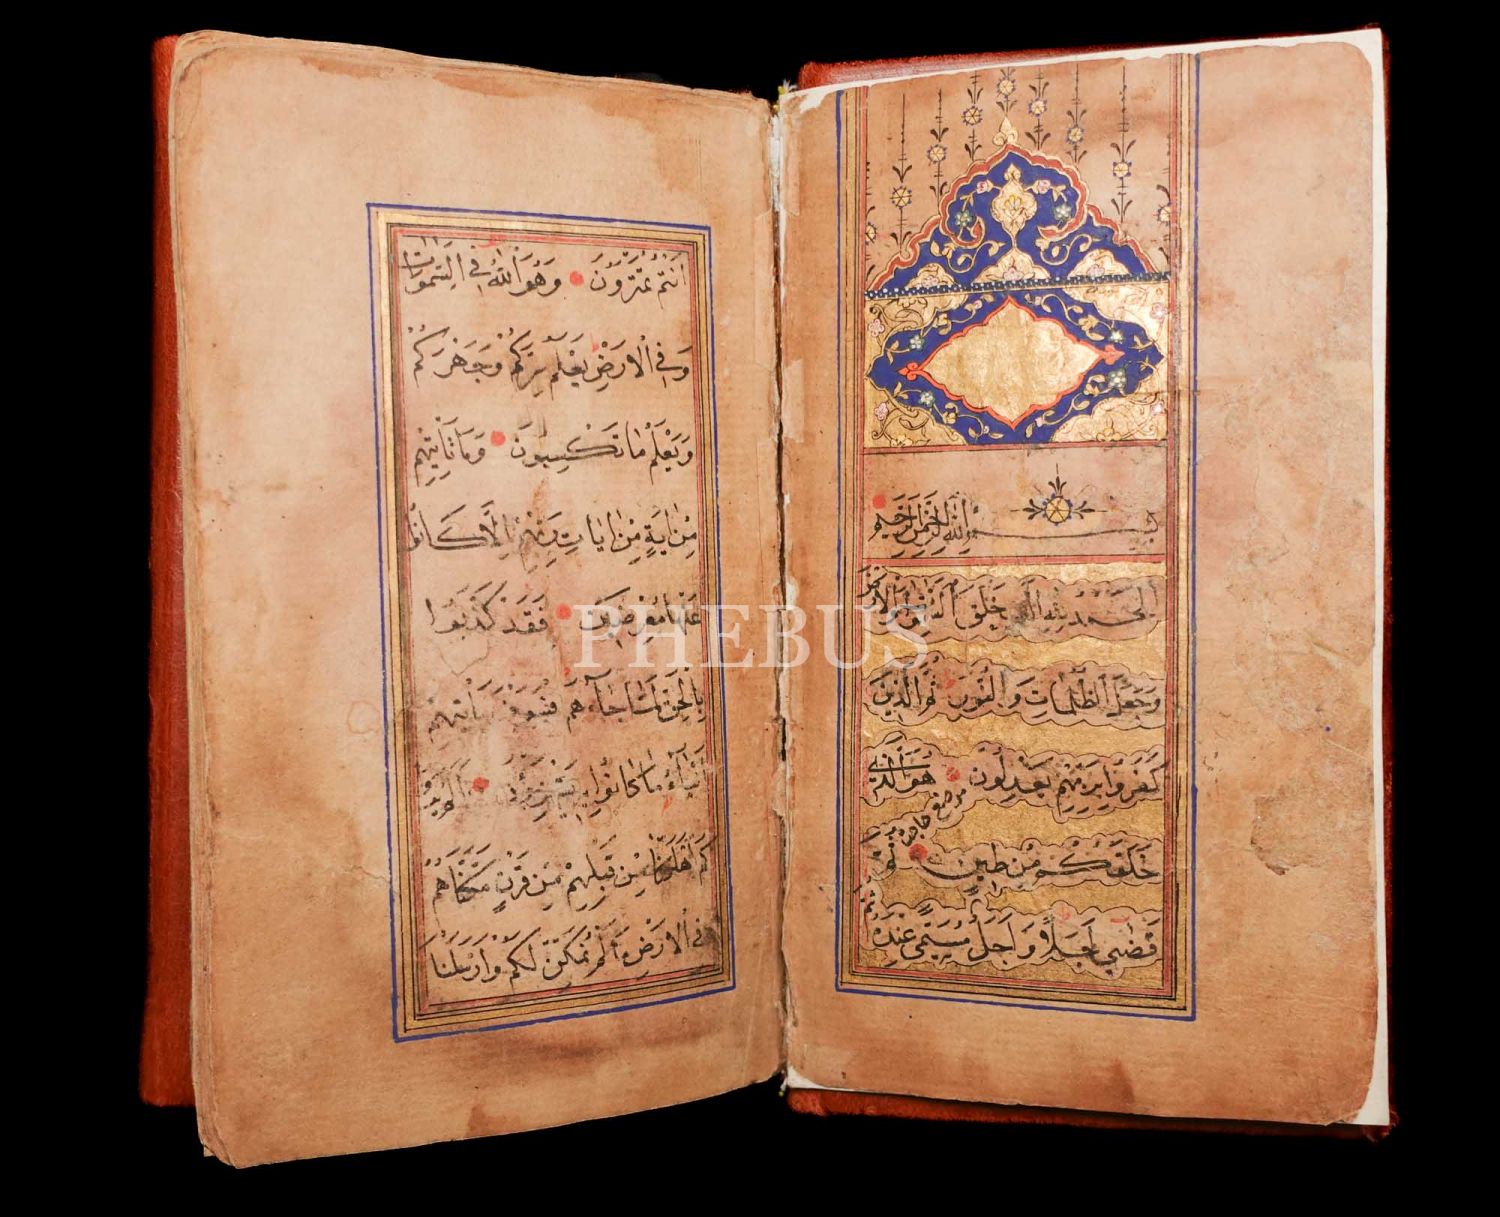 بسم الله الرحمن الرحيم
الحمد لله الذي خلق السموات والارض
وجعل الظلمات والنور ثم الذين
كفروا بربهم يعدلون هو الذي
خلقكم من طين ثم
قضى اجلا واجل مسمى عنده ثم
انتم تمترون وهو الله في السموات
وفي الارض يعلم سركم وجهركم
ويعلم ما تكسبون وما تأتيهم
من اية من ايات ربهم الا كانوا
عنها معرضين فقد كذبوا
بالحق لما جاءهم فسوف يأتيهم
انباء ما كانوا به يستهزؤن الم يروا
كم اهلكنا من قبلهم من قرن مكناهم
في الارض ما لم نمكن لكم وارسلنا
PHEBUS